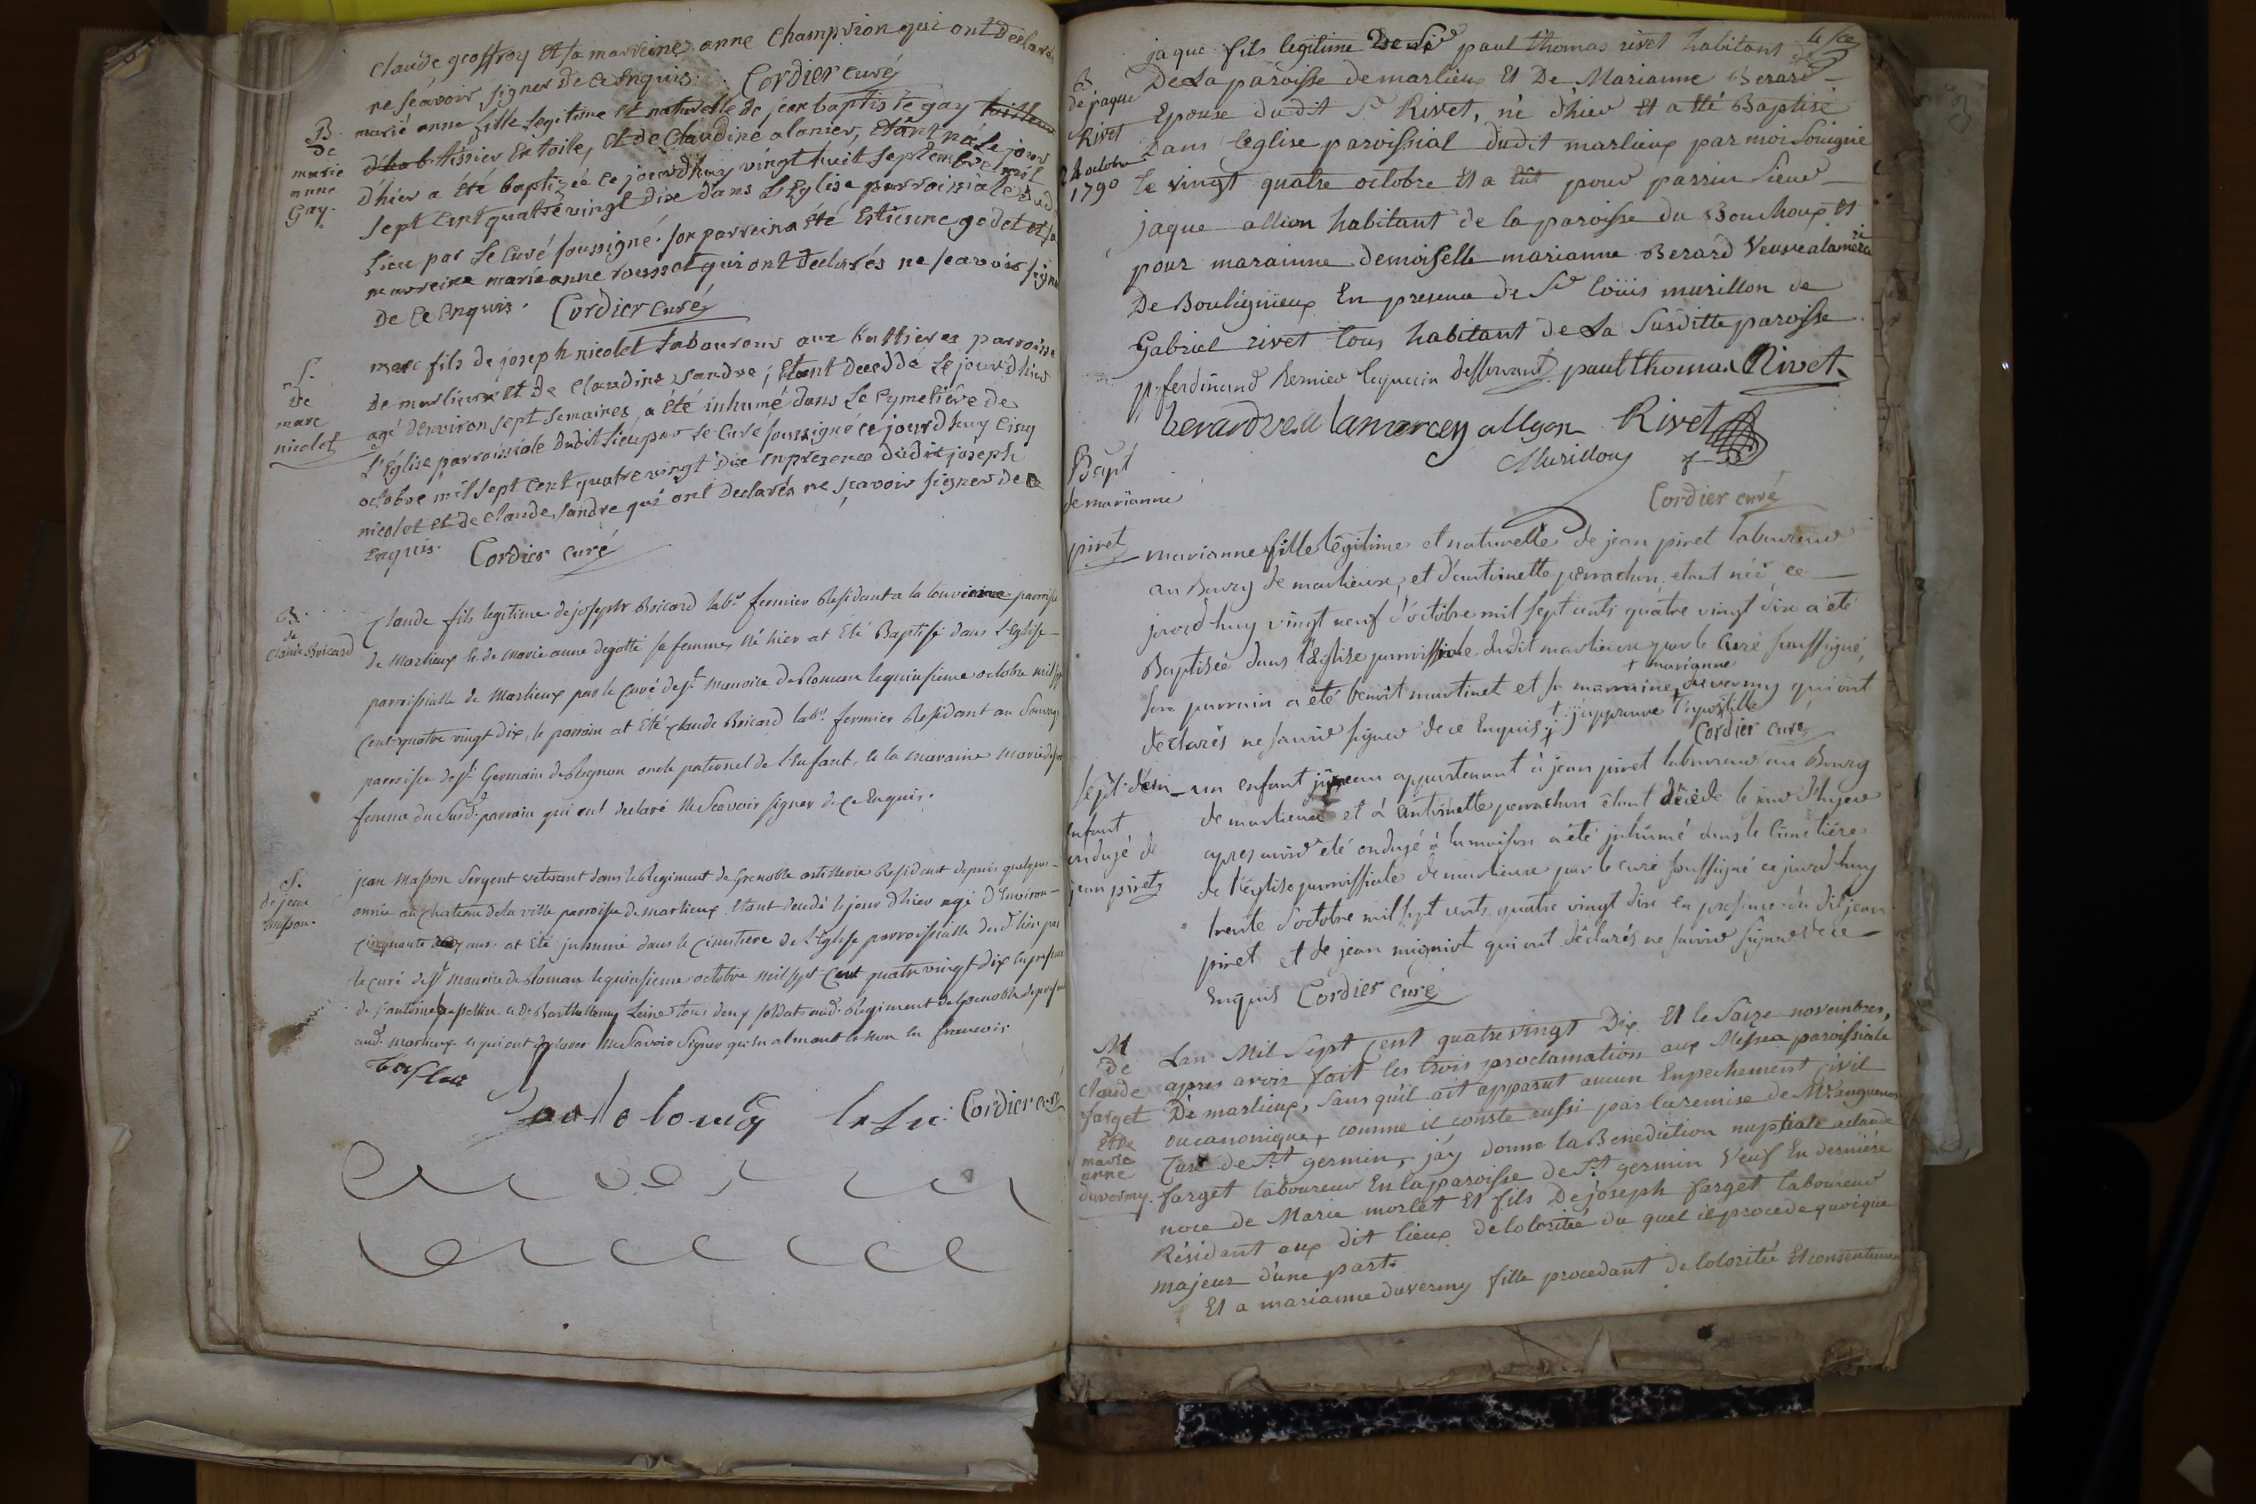 claude geoffroy et sa marreine anne champvion qui ont declarés
ne sçavoir signer de ce enquis. Cordier curé
B.
de
marie
anne
Gay.
marié anne fille legitime et naturelle de jean baptiste gay
tissier en toile, et de Claudine alonier, étant née le jour
d'hier a été baptizée ce jourdhuy vingt huit septembre mil
sept cent quatre vingt dix dans l'Eglise parroissiale dud
lieu par le curé soussigné. son parrein a été Estienne godet et sa
marreine marie anne rousset qui ont declarés ne sçavoir signer
de ce enquis. Cordier curé
S.
de
marc
nicolet
marc fils de joseph nicolet laboureur aux buttieres parroisse
de marlieux et de claudine sandre, étant decedé le jour d'hier
agé d'environ sept semaines, a été inhumé dans le cymetière de
l'Eglise parroissiale dudit lieu par le curé soussigné ce jourdhuy cinq
octobre mil sept cent quatre vingt dix en presence dudit joseph
nicolet et de claude sandre qui ont declarés ne sçavoir signer de ce
enquis. Cordier curé
B.
de
Claude Boicard
Claude fils legitime de joseph Boicard labr. fermier Residant a la parroisse
de Marlieux et de marie anne degotte sa femme, né hier at Eté Baptisé dans l'Eglise
parroissialle de Marlieux par le curé de st. Maurice de Romans le quinsieme octobre mil sept
cent quatre vingt dix, le parrain at Eté Claude Boicard labr. fermier Residant au
parroisse de st. Germain de Regnon oncle paternel de l'Enfant, et la maraine marie
femme du susd. parrain qui ont declaré ne Scavoir signer de ce Enquis.
S.
de jean
masson.
jean Masson Sergent veterant dans le Regiment de Grenoble artillerie Resident depuis quelque
année au chateau de la ville parroisse de marlieux Etant decedé le jour d'hier agé d'Environ
cinquante ans at Eté inhumé dans le cimetiere de l'Eglise parroissialle dud. lieu par
le curé de st. Maurice de Romans le quinsieme octobre mil sept cent quatre vingt dix En presence
de Barthellemy tous deux soldats aud. Regiment de Grenoble
aud. Marlieux et qui ont declaré ne Savoir Signer qu'en almant le non en francois
Cordier curé
4 fce
B
de jaque
Rivet
24 octobre
1790
jaque fils legitime De Sr paul thomas rivet habitant
De La paroisse de marlieux Et De Marianne Berard
Epouse du dit Sr Rivet, né d'hier Et a été Baptisé
Dans l'eglise paroissial dudit marlieux par moi Souigné
le vingt quatre octobre Et a eût pour parrin Sieur
jaque allion habitant de la paroisse du Bouchoux Et
pour marainne demoiselle marianne Berard Veuve
De Bouligneux En presence de Sr loüis murillon de
Gabriel rivet tous habitant de La Susditte paroisse
p. ferdinand desservant. paul thomas Rivet.
berard ve lamercey allyon Rivet
Murillon
Cordier curé
Bapt
de marianne
piret
marianne fille légitime et naturelle de jean piret laboureur
au Bourg de marlieux, et d'antoinette perrachon etant née ce
jourd'huy vingt neuf d'octobre mil sept cents quatre vingt dix a été
Baptisée dans l'Eglise parroissiale dudit marlieux par le curé soussigné,
son parrain a été benoit martinet et sa marraine + marianne duverney qui ont
déclarés ne savoir signer de ce Enquis + + j'approuve l'apostille
Cordier curé
sept. d'un
enfant
ondoyé de
jean piret
un enfant jumeau appartenant à jean piret laboureur au Bourg
de marlieux et à antoinette perrachon étant décédé le jour d'hyer
apres avoir été ondoyé à la maison a été inhumé dans le cimetiére
de l'église parroissiale de marlieux par le curé soussigné ce jourd'huy
trente d'octobre mil sept cents quatre vingt dix en presence du dit jean
piret et de jean mignot qui ont déclarés ne savoir signer de ce
Enquis Cordier curé
M
De
Claude
farget
Et De
marie
anne
duverny.
Lan Mil Sept Cent quatre vingt Dix Et le Saize novembres,
apres avoir fait les trois proclamation aux Messes paroissiale
De marlieux, Sans qu'il ait apparut aucun Enpechement civil
ou canonique, comme il conste aussi par la remise de Mr
Curé de St. germin, j'ay donne la Benediction nuptiale a claude
farget laboureur En la paroisse de St. germin Veuf En derniére
noce de Marie morlet Et fils De joseph farget laboureur
Résidant aux dit lieux de lotoritée du quel il procede quoique
majeur d'une part.
Et a marianne duverny fille procedant de lotoritée Et consentement